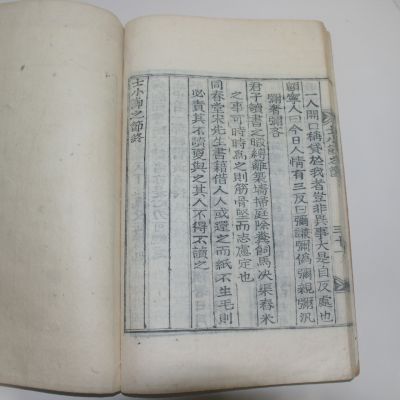 人開口稱貸於我者豈非異事大是自反處也
顧寧人曰今日人情有三反曰彌謙彌偽彌親彌汎
彌奢彌吝
君子讀書之暇縛籬築墻掃庭除糞飼馬決渠舂米
之事可時時爲之則筋骨堅而志慮定也
同春堂宋先生書籍借人人或還之而紙不生毛則
必責其不讀更與之其人不得不讀之
士小之節終